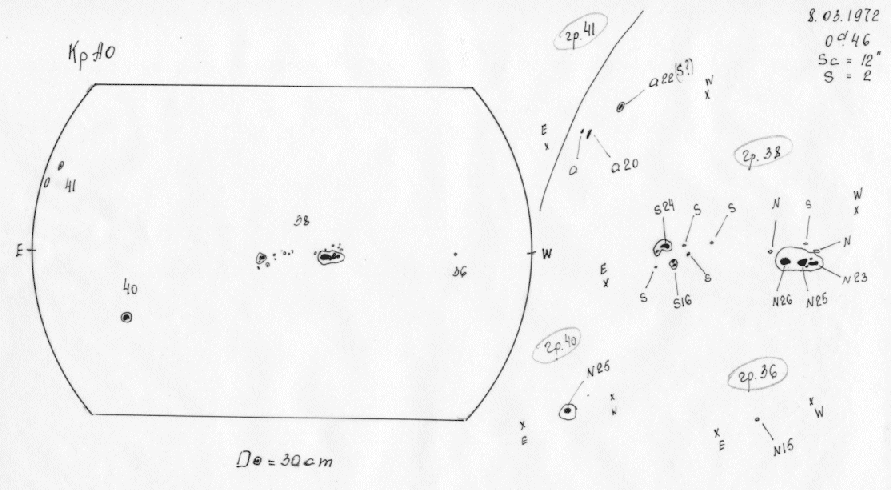 8.03.1972
0ᵈ,46
Sc = 12"
S = 2
КрАО
E
W
41
38
40
36
D⊙ = 30 cm
гр.41
a22(S?)
W
x
E
x
a
a20
гр.38
S24
S
S
N
S
W
x
N
E
x
S
S16
S
N26
N25
N23
гр.40
N26
x
E
x
W
гр.36
x
W
x
E
N15